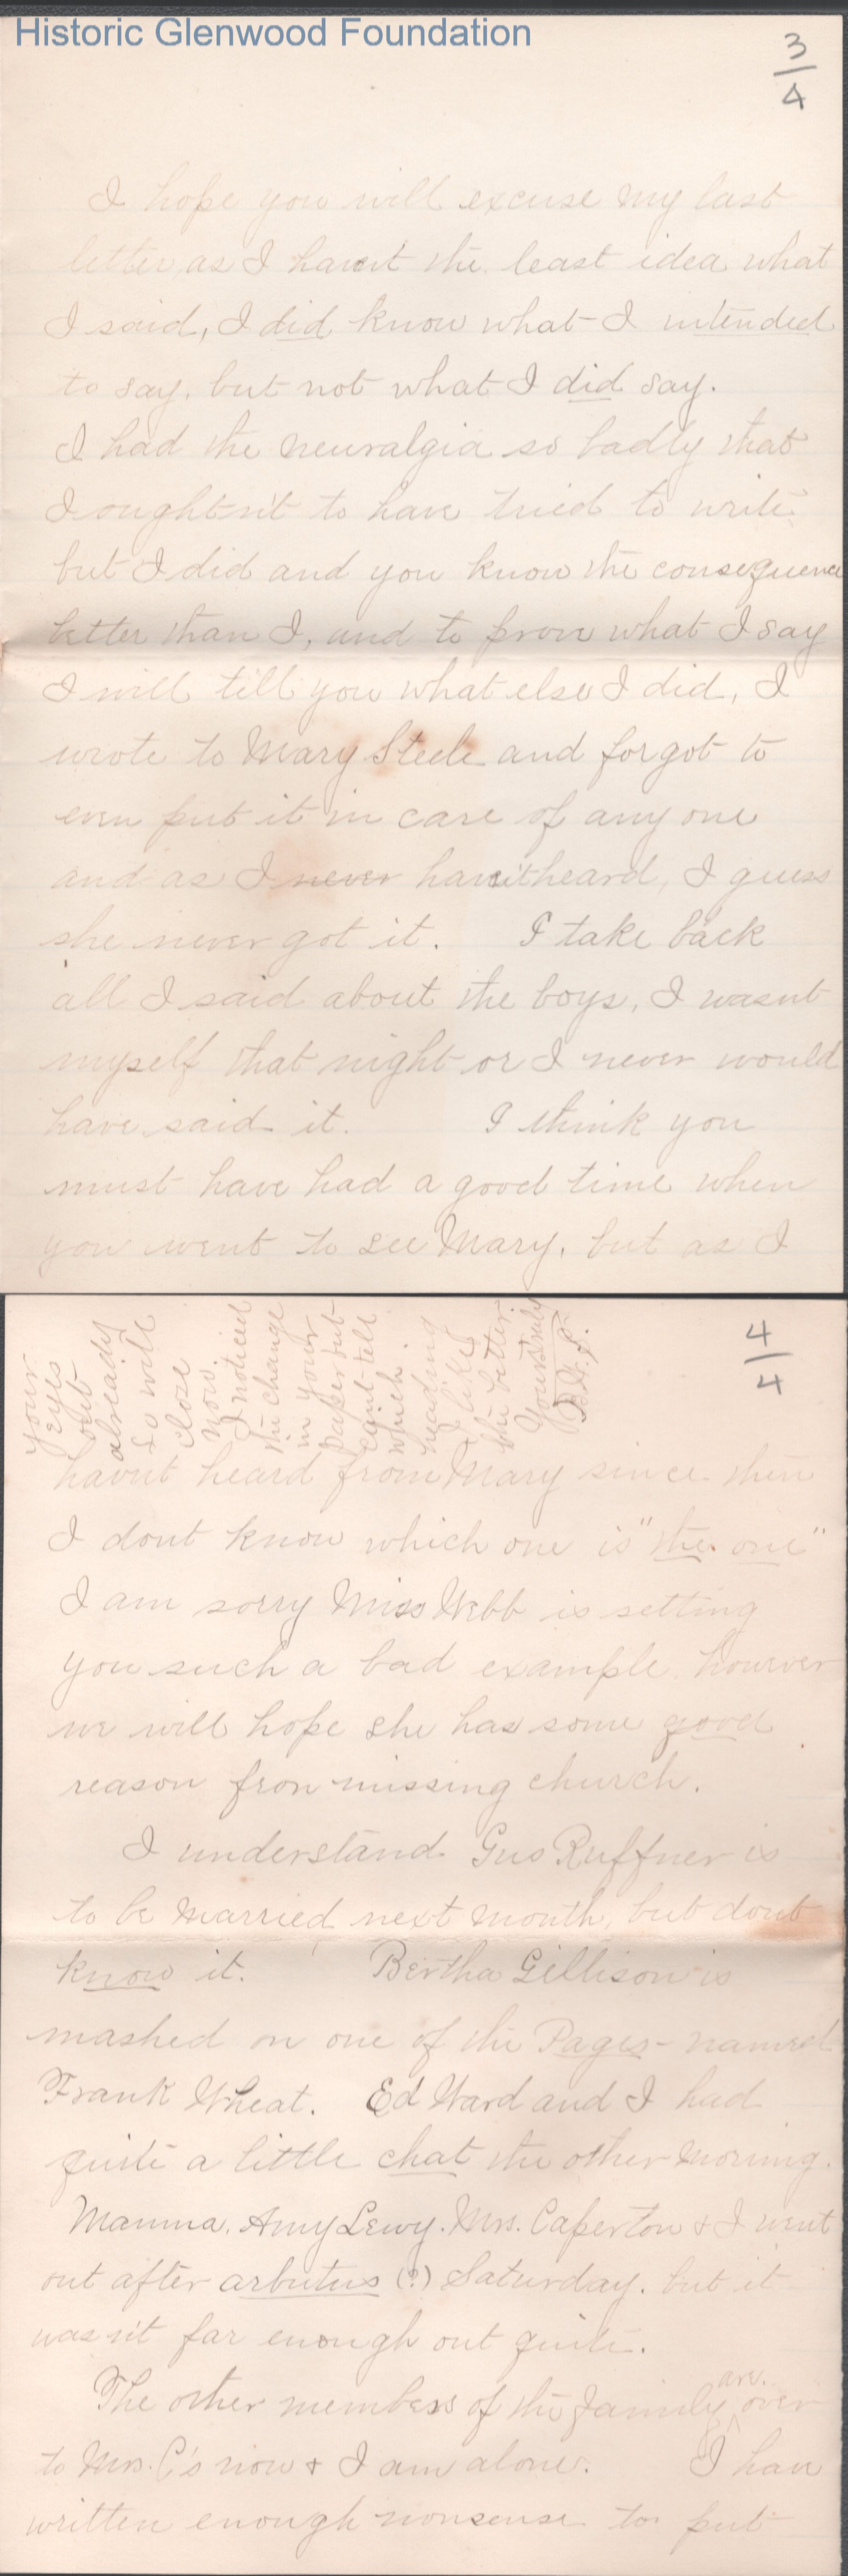 Historic Glenwood Foundation
3/4
I hope you will excuse my last
letter as I havent the least idea what
I said, I did know what I intended
to say, but not what I did say.
I had the neuralgia so badly that
I oughtn't to have tried to write
but I did and you know the consequence
better than I, and to prove what I say
I will tell you what else I did, I
wrote to Mary Steele and forgot to
even put it in care of any one
and as I never havent heard, I guess
she never got it. I take back
all I said about the boys, I wasnt
myself that night or I never would
have said it. I think you
must have had a good time when
you went to see Mary, but as I
4/4
havnt heard from Mary since then
I dont know which one is "the one"
I am sorry Miss Webb is setting
you such a bad example, however
we will hope she has some good
reason fron missing church.
I understand Gus Ruffner is
to be married next month, but dont
know it. Bertha Gillison is
mashed on one of the Pages - named
Frank Wheat. Ed Ward and I had
quite a little chat the other morning.
Mamma, Amy Lewy, Mrs. Caperton & I went
out after arbutus (?) Saturday, but it
was n't far enough out quite.
The other members of the family are over
to Mrs. C's now & I am alone. I have
written enough nonsense to put
your
eyes
out
already
so will
close
now.
I noticed
the change
in your
paper but
cant tell
which
heading
I like
the better.
Yours truly